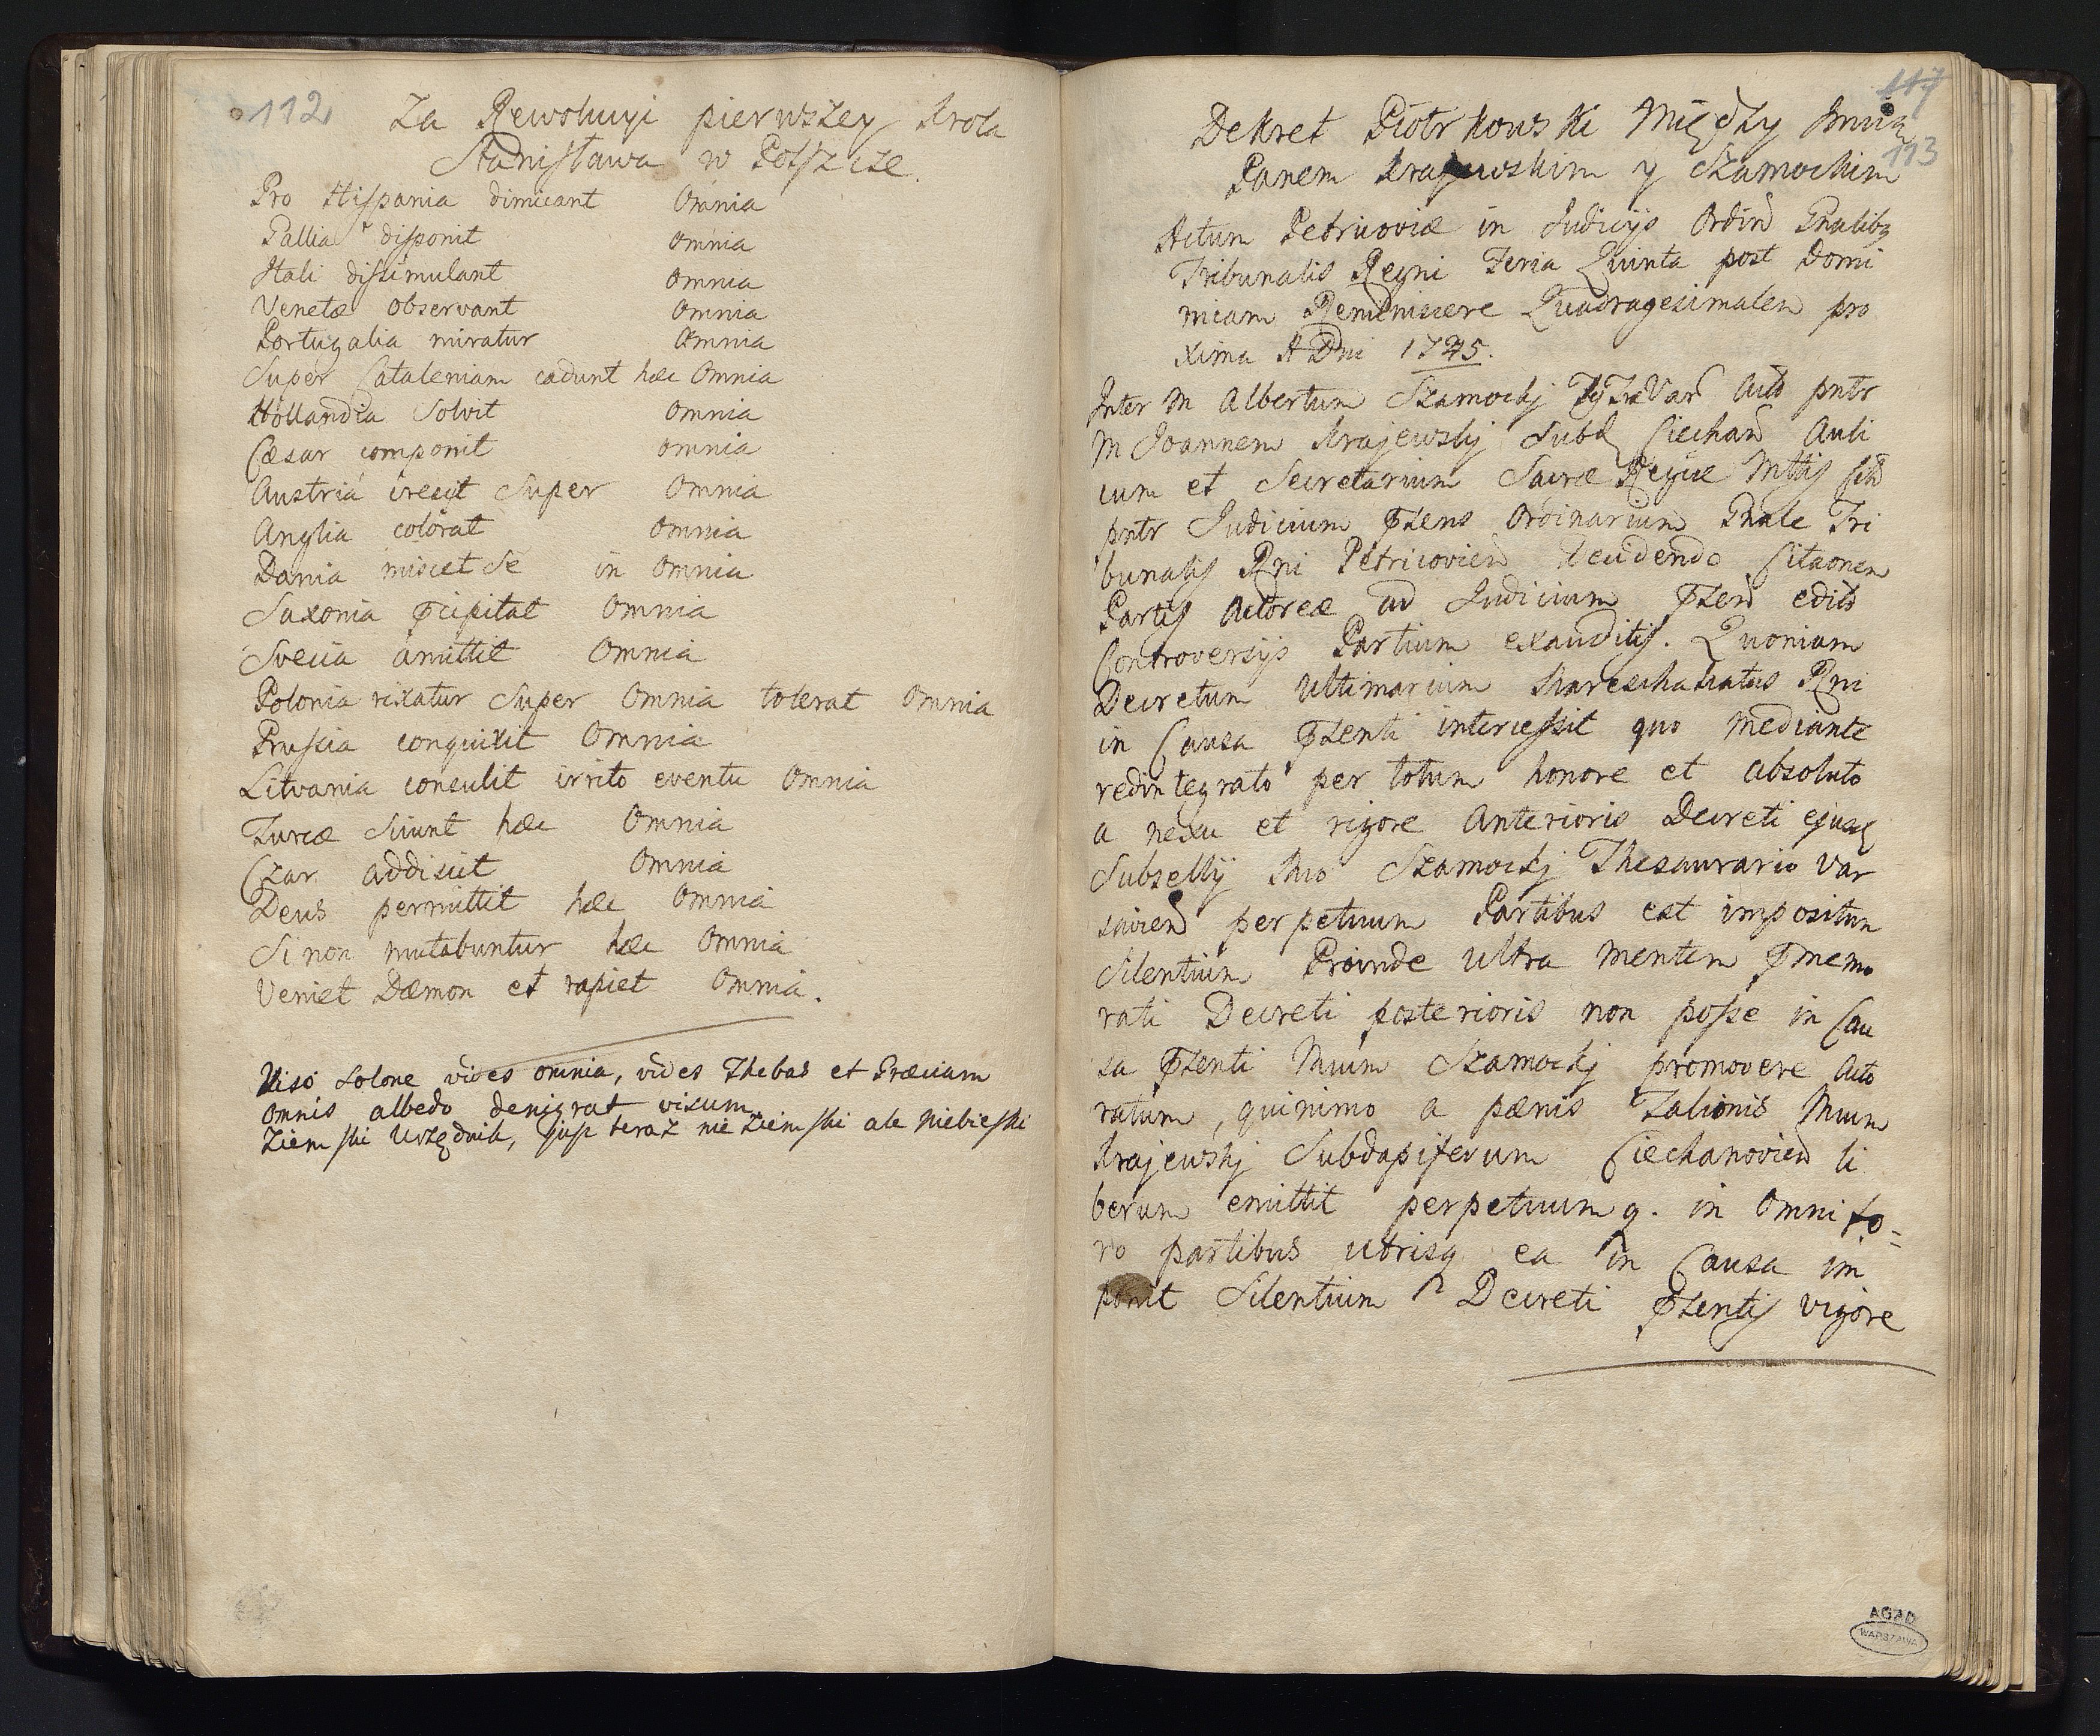 112
Za Rewolucyi pierwszey Krola
Stanisława w Polszcze.
Pro Hispania dimicant Omnia
Gallia disponit Omnia
Itali dissimulant Omnia
Venetæ observant Omnia
Portugalia miratur Omnia
Super Cataleniam cadunt hæc Omnia
Hollandia Solvit Omnia
Cæsar componit omnia
Austria crescit Super Omnia
Anglia colorat Omnia
Dania miscet Se in Omnia
Saxonia pcipitat Omnia
Svecia amittit Omnia
Polonia rixatur Super Omnia tolerat Omnia
Prussia conquixit Omnia
Litvania consulit irrito eventu Omnia
Turcæ Sciunt hæc Omnia
Czar addiscit Omnia
Deus permittit hæc Omnia
Si non mutabuntur hæc Omnia
Veniet Dæmon et rapiet Omnia.
Viso Solone vides omnia, vides Thebas et Græciam
Omnis albedo denigrat visum
Ziemski Urzędnik, jusz teraz nie ziemski ale Niebieski
117
113
Dekret Piotrkowski Między
Panem Krajewskim y Szamockim
Actum Petricoviæ in Judicijs Ordin Gnalibq
Tribunalis Regni Feria Quinta post Domi
nicam Reminiscere Quadragesimalem pro
xima A Dni 1745.
Inter M Albertum Szamockj Var Acto pntr
M Joannem Krajewskj Subd Ciechan Auli
cum et Secretarium Sacræ Regiæ Mttis
pntr Judicium Pzens Ordinarium Gnale Tri
bunalis Rni Petricovien Citaonem
Partis Actoreæ ad Judicium Pzens edito
Controversijs Partium exauditis. Quoniam
Decretum Ultimarium Mareschalcatus Rni
in Causa Pzenti intercessit quo mediante
redintegrato per totum honore et absoluto
a nexu et rigore Anterioris Decreti ejusd
Subselly Mco Szamockj Thesaurario Var
savien perpetuum Partibus est impositum
Silentium Proinde Ultra mentem Pmemo
rati Decreti posterioris non posse in Cau
sa Pzenti Mcum Szamockj promovere Acto
ratum, quinimo a pænis Talionis Mcum
Krajewskj Subdapiferum Ciechanovien li
berum emittit perpetuumq. in Omni fo=
ro partibus utrisq ea in Causa im
ponit Silentium Decreti Pzentis vigore
AGAD
WARSZAWA